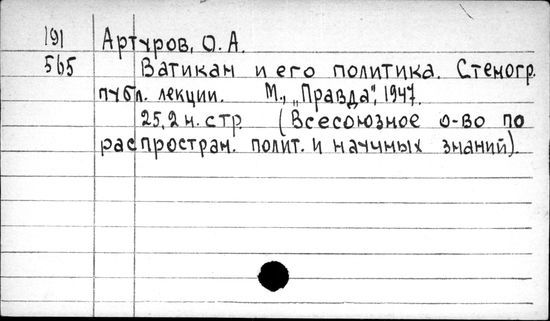 191 Артуров, О. А.
565 Ватикан и его политика. Стеногр.
публ. лекции. М., „Правда", 1947.
25,2 н. стр. (Всесоюзное о-во по
распростран. полит. и научных знаний).